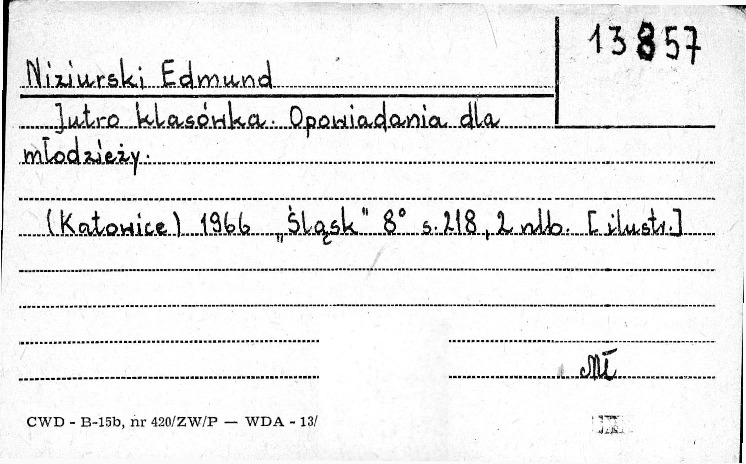 13857
Niziurski Edmund
Jutro klasówka. Opowiadania dla
młodzieży.
(Katowice) 1966 „Śląsk" 8° s. 218, 2 nlb. [ilustr.]
Mł
CWD - B-15b, nr 420/ZW/P — WDA - 13/